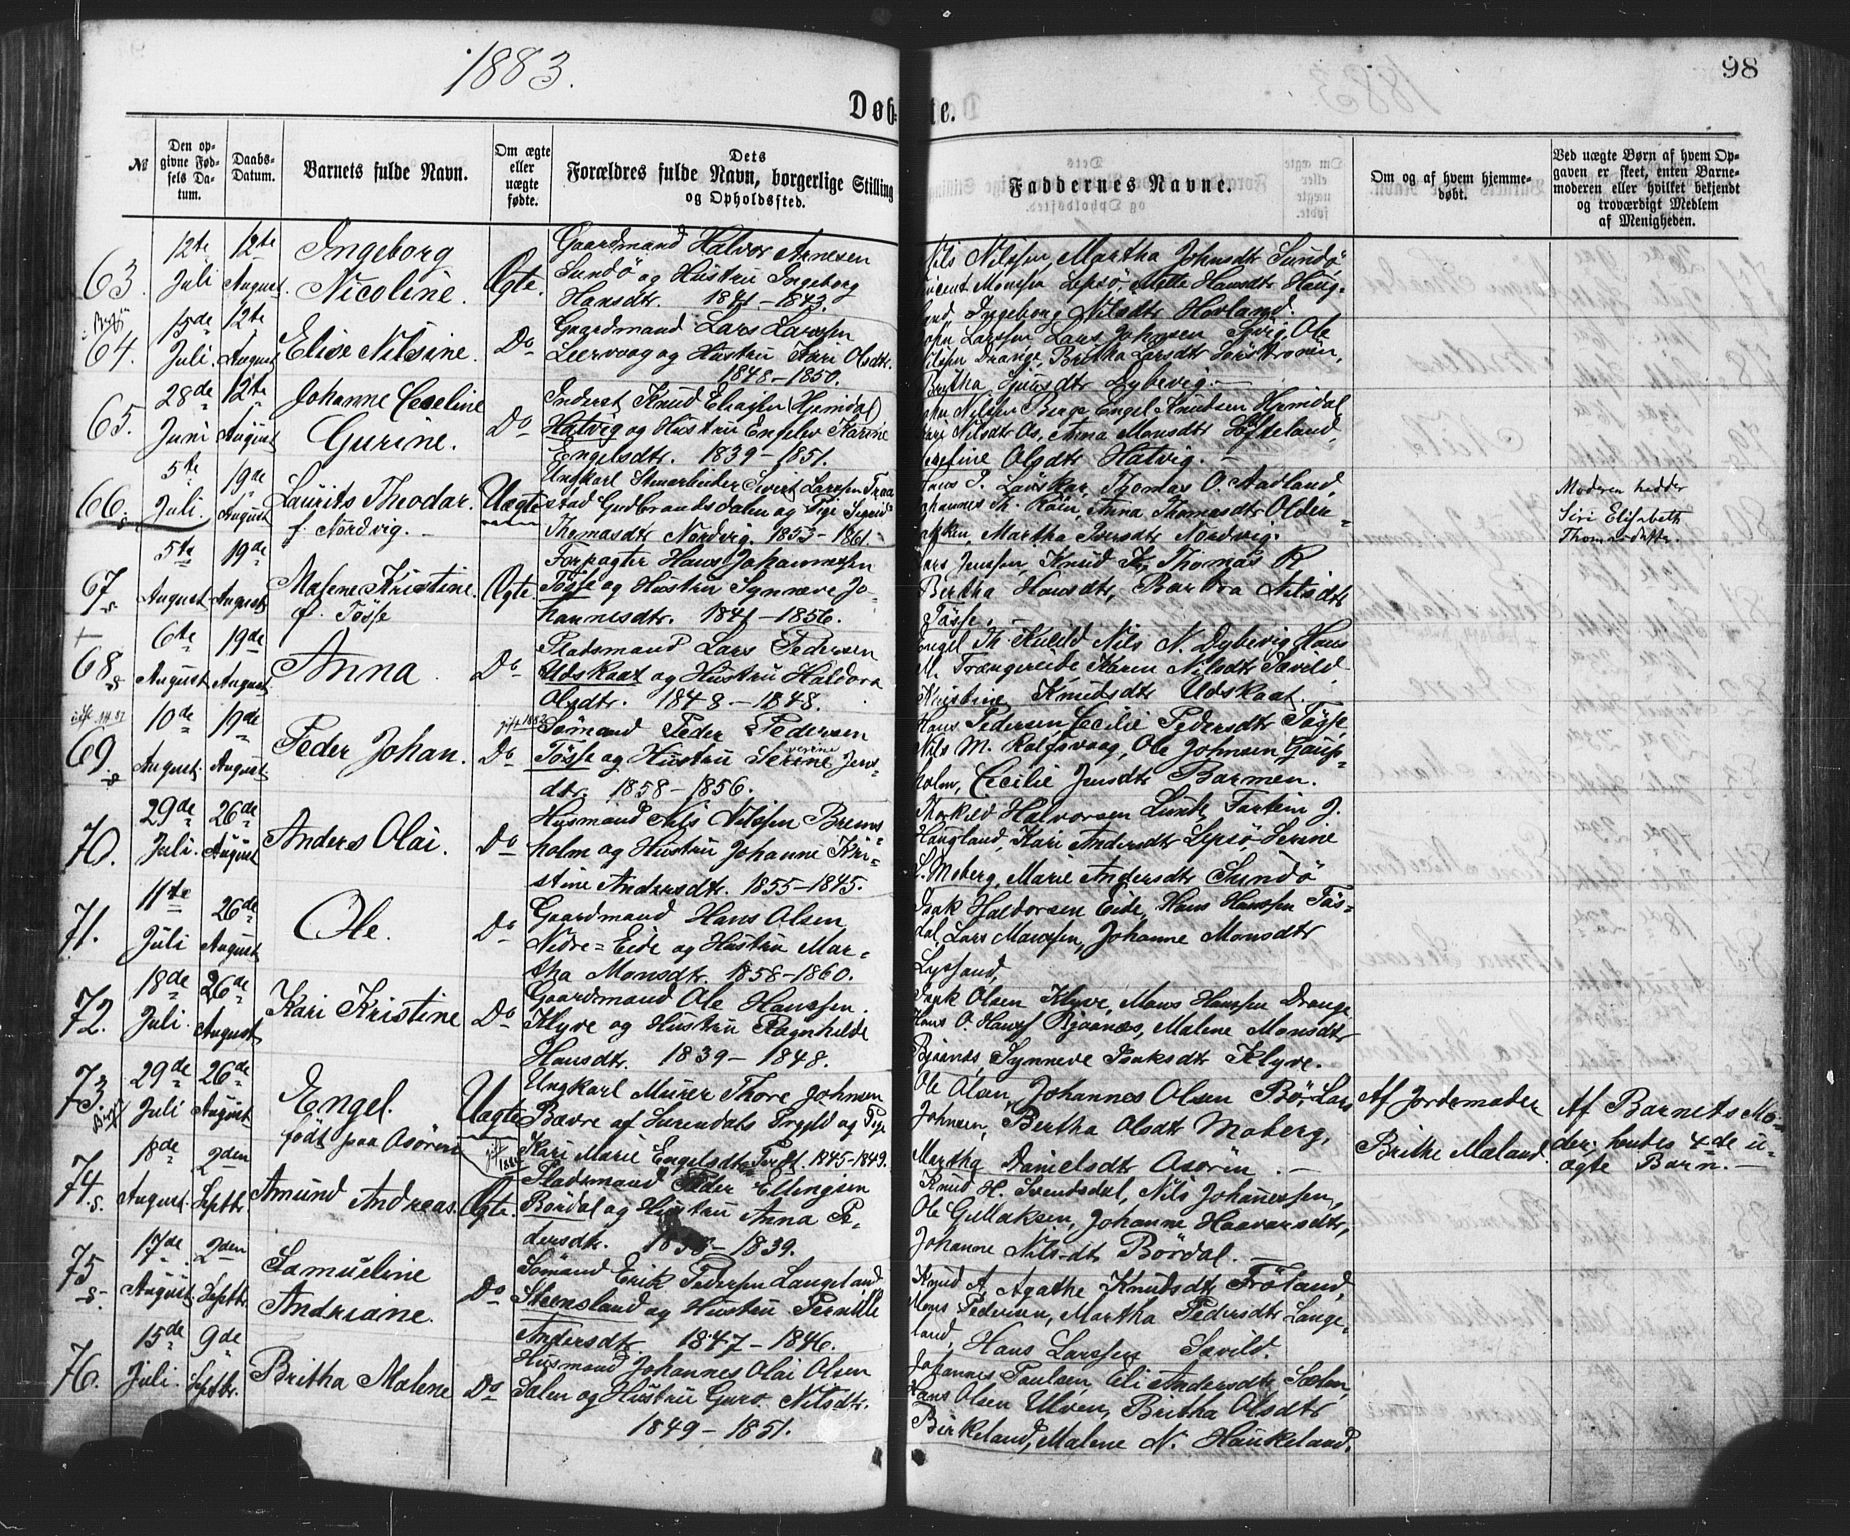 1883.
98
Døbte.
№
Den opgivne Fødsels Datum.
Daabs-Datum.
Barnets fulde Navn.
Om ægte eller uægte fødte.
Dets Forældres fulde Navn, borgerlige Stilling og Opholdssted.
Faddernes Navne.
Om og af hvem hjemmedøbt.
Ved uægte Børn af hvem Opgaven er skeet, enten Barnemoderen eller hvilket bekjendt og troværdigt Medlem af Menigheden.
63. 12te Juli 12te August.
Ingeborg
Nicoline.
Ægte.
Gaardmand Halvor Arnesen
Sundö og Hustru Ingeborg
Hansdtr. 1841–1843.
Nils Nilssen, Martha Johnsdtr Sundö
Monssen Lepsö, Mette Hansdtr Haug-
land Ingeborg Nilsdtr Hovland.
64. 15de Juli. 12te August
Elise Nilsine.
Do
Gaardmand Lars Larssen
Leervaag og Hustru Kari Olsdtr.
1848–1850.
Larssen Lars Johnsen Ole
Olsen Drange Britha Larsdtr
Britha Dybevig.
65. 28de Juni 12te August
Johanne Ceseline
Gurine.
Do
Inderst Knud Eliassen (Hjemdal)
Hatvig og Hustru Engelev Karine
Engelsdtr. 1839–1851.
Nilsen Berge Engel Knudsen Hjemdal
Kari Nilsdtr Os, Anna Monsdtr Söfteland,
Josefine Olsdtr Hatvig.
66. s 5te Juli. 19de August
Laurits Theodor.
f. Nordvig.
Uægte
Ungkarl Stenarbeider Sivert Larssen
stad Gudbrandsdalen og Pige Sigrid
Thomasdtr Nordvig. 1853–1861.
Thomas O. Aadland,
Johannes Th. Röin, Anna Thomasdtr Older-
bakken, Martha Iversdtr Nordvig.
Moderen hedder
Siri Elisabeth
Thomasdatter
67. s 5te August 19de August
Malene Kristine
f. Tösse
Ægte
Forpagter Hans Johannessen
Tösse og Hustru Synneve Jo-
hannesdtr. 1841–1856.
Lars Jenssen, Knud K. Thomas R
Bertha Hansdtr, Barbra Nilsdtr
Tösse.
+
68. s 6te August 19de August
Anna
Do
Pladsmand Lars Pedersen
Udskaat og Hustru Haldora
Olsdtr. 1848.–1848.
Engel Th. Kuld Nils N. Dybevig Hans
M. Trængereide Karen Nilsdtr Sævild
Kristine Knudsdtr Udskaat
69. s 10de August. 19de August
Peder Johan.
Do
Sömand Peder Pedersen
Tösse og Hustru Serine Jens-
verine
dtr. 1858–1856.
Hans Pedersen, Cecilie Pedersdtr Tösse,
Nils M. Rolfsvaag, Ole Johnsen Gaus-
holm, Cecilie Jensdtr Barmen.
70. 29de Juli. 26de August
Anders Olai.
Do
Husmand Nils Nilssen Brems-
holm og Hustru Johanne Kri-
stine Andersdtr. 1855–1845.
Torkild Halvorsen Lunde Torkin J.
Haugland, Kari Andersdtr Lepsö Serine
S. Moberg, Marie Andersdtr Sundö
71. 11te Juli 26de August
Ole.
Do
Gaardmand Hans Olsen
Nedre=Eide og Hustru Mar-
tha Monsdtr. 1858–1860.
Isak Haldorsen Eide, Hans Hanssen Tös-
dal, Lars Monssen, Johanne Monsdtr
Lyssand.
72. 18de Juli. 26de August
Kari Kristine
Do
Gaardmand Ole Hanssen.
Klyve og Hustru Ragnhilde
Hansdtr. 1839–1848.
Isak Olsen Klyve, Mons Hanssen Drange
Hans O. Hanss Bjaanæs, Malene Monsdtr
Bjaanæs, Synneve Isaksdtr Klyve.
73. 29de Juli 26de August
Engel.
födt paa Osören
Uægte
Ungkarl Murer Thore Johnsen
Bævre af Surendals Prgjld og Pige
Kari Marie Engelsdtr Tvedt. 1845–1849.
Ole Olsen, Johannes Olsen Bö, Lars
Johnsen, Bertha Olsdtr Moberg,
Martha Danielsdtr Osören.
Af Jordemoder
Brithe Maland.
Af Barnets Mo-
der; hendes 4de u-
ægte Barn.
74. s. 18de August. 2den Septbr.
Amund Andreas.
Ægte.
Pladsmand Peder Ellingsen
Bördal og Hustru Anna Pe-
dersdtr. 1838–1839.
Knud H. Svendsdal, Nils Johannessen,
Ole Gullaksen, Johanne Haavarsdtr,
Johanne Nilsdtr Bördal.
75. s. 17de August 2den Septbr.
Samueline
Andriane.
Do
Sömand Erik Pedersen Langeland
Steensland og Hustru Pernille
Andersdtr. 1847–1846.
Knud A. Agathe Knudsdtr Fröland,
Mons Pedersen, Martha Pedersdtr Lange-
land, Hans Larssen Sævild.
76. 15de Juli. 9de Septbr.
Britha Malene
Do
Husmand Johannes Olai Olsen
Salen og Hustru Guro Nilsdtr.
1849–1851.
Johannes Paulsen, Eli Andersdtr Sælen,
Hans Olsen Ulven, Britha Olsdtr
Birkeland, Malene N. Haukeland.